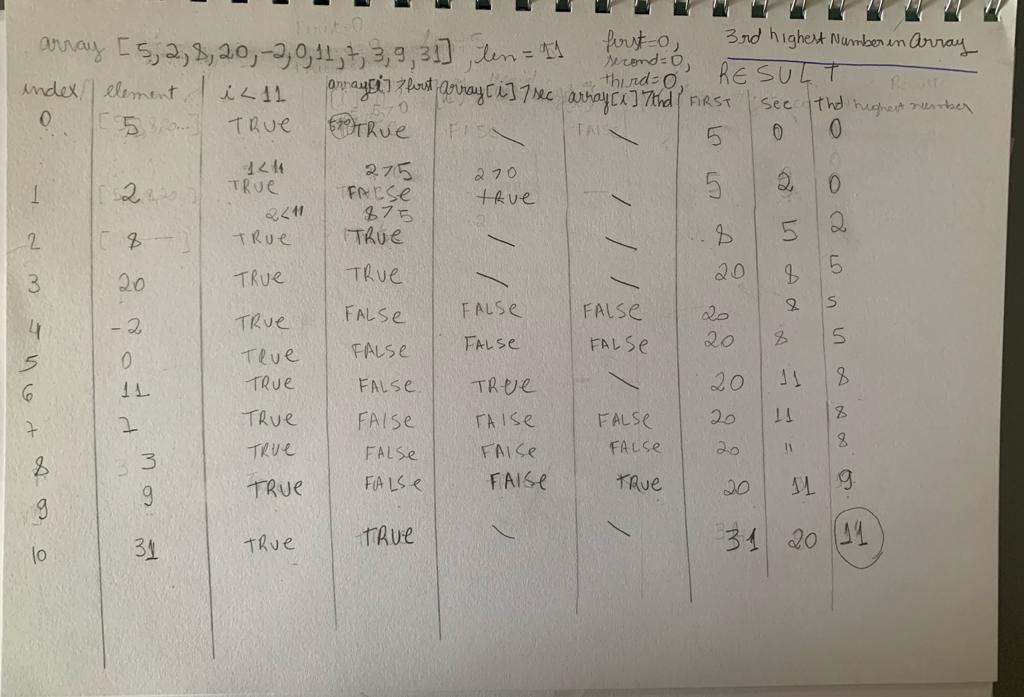 3rd highest Number in Array
array [5, 2, 8, 20, -2, 0, 11, 7, 3, 9, 31], len = 11 first=0, second=0, third=0,
RESULT
index element i < 11 array[i] > first array[i] > sec array[i] > thd FIRST sec thd highest number
0 5 TRUE 5>0 TRUE \ \ 5 0 0
1<11 2>5 2>0
1 2 TRUE FALSE TRUE \ 5 2 0
2<11 8>5
2 8 TRUE TRUE \ \ 8 5 2
3 20 TRUE TRUE \ \ 20 8 5
4 -2 TRUE FALSE FALSE FALSE 20 8 5
5 0 TRUE FALSE FALSE FALSE 20 8 5
6 11 TRUE FALSE TRUE \ 20 11 8
7 7 TRUE FAlSe FAlSe FALSe 20 11 8
8 3 TRUE FALSe FAlSe FALSe 20 11 8
9 9 TRUE FALSe FAlSe TRUE 20 11 9
10 31 TRUE TRUE \ \ 31 20 11